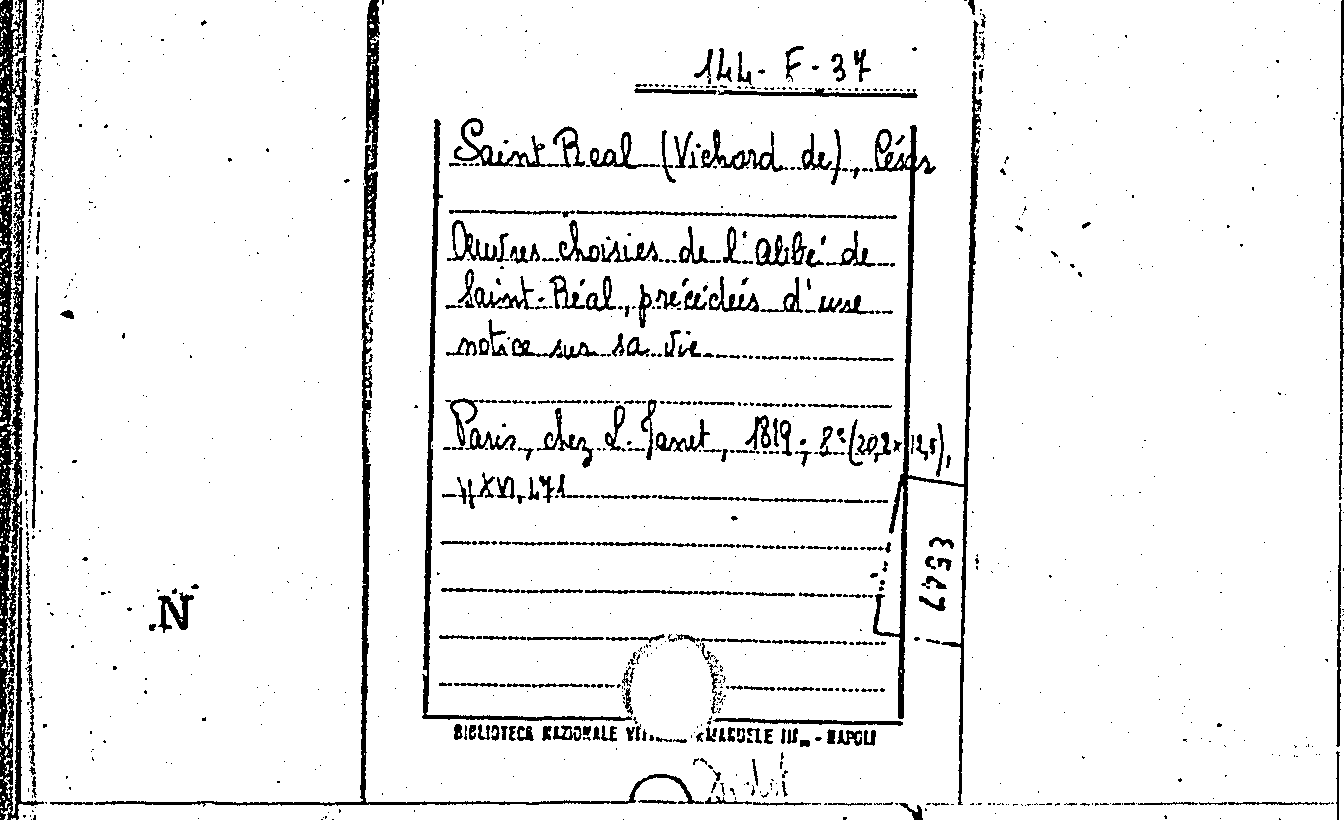 144- F - 37
Saint Real (Vichard de), César
Œuvres choisies de l'abbé de
Saint-Réal, précédées d'une
notice sur sa vie
Paris, chez L. Janet, 1819; 8° (20,2 x 12,5),
pp XVI, 471
3547
N
BIBLIOTECA NAZIONALE - NAPOLI